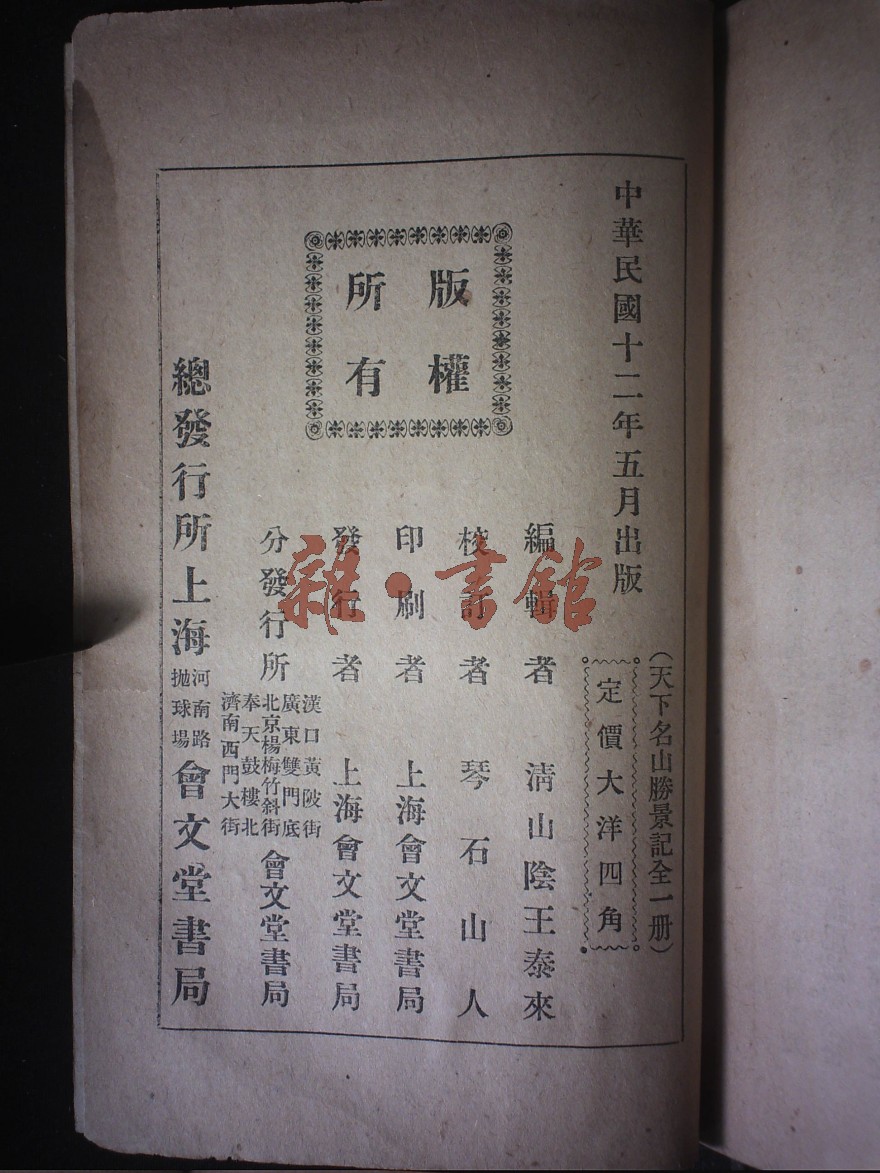 中華民國十二年五月出版
(天下名山勝景記全一册)
定價大洋四角
版權
所有
編輯者 淸山陰王泰來
校訂者 琴石山人
印刷者 上海會文堂書局
發行者 上海會文堂書局
分發行所
漢口黃陂街
廣東雙門底
北京楊梅竹斜街
奉天鼓樓北
濟南西門大街
會文堂書局
總發行所上海
河南路
拋球場
會文堂書局
雜·書館